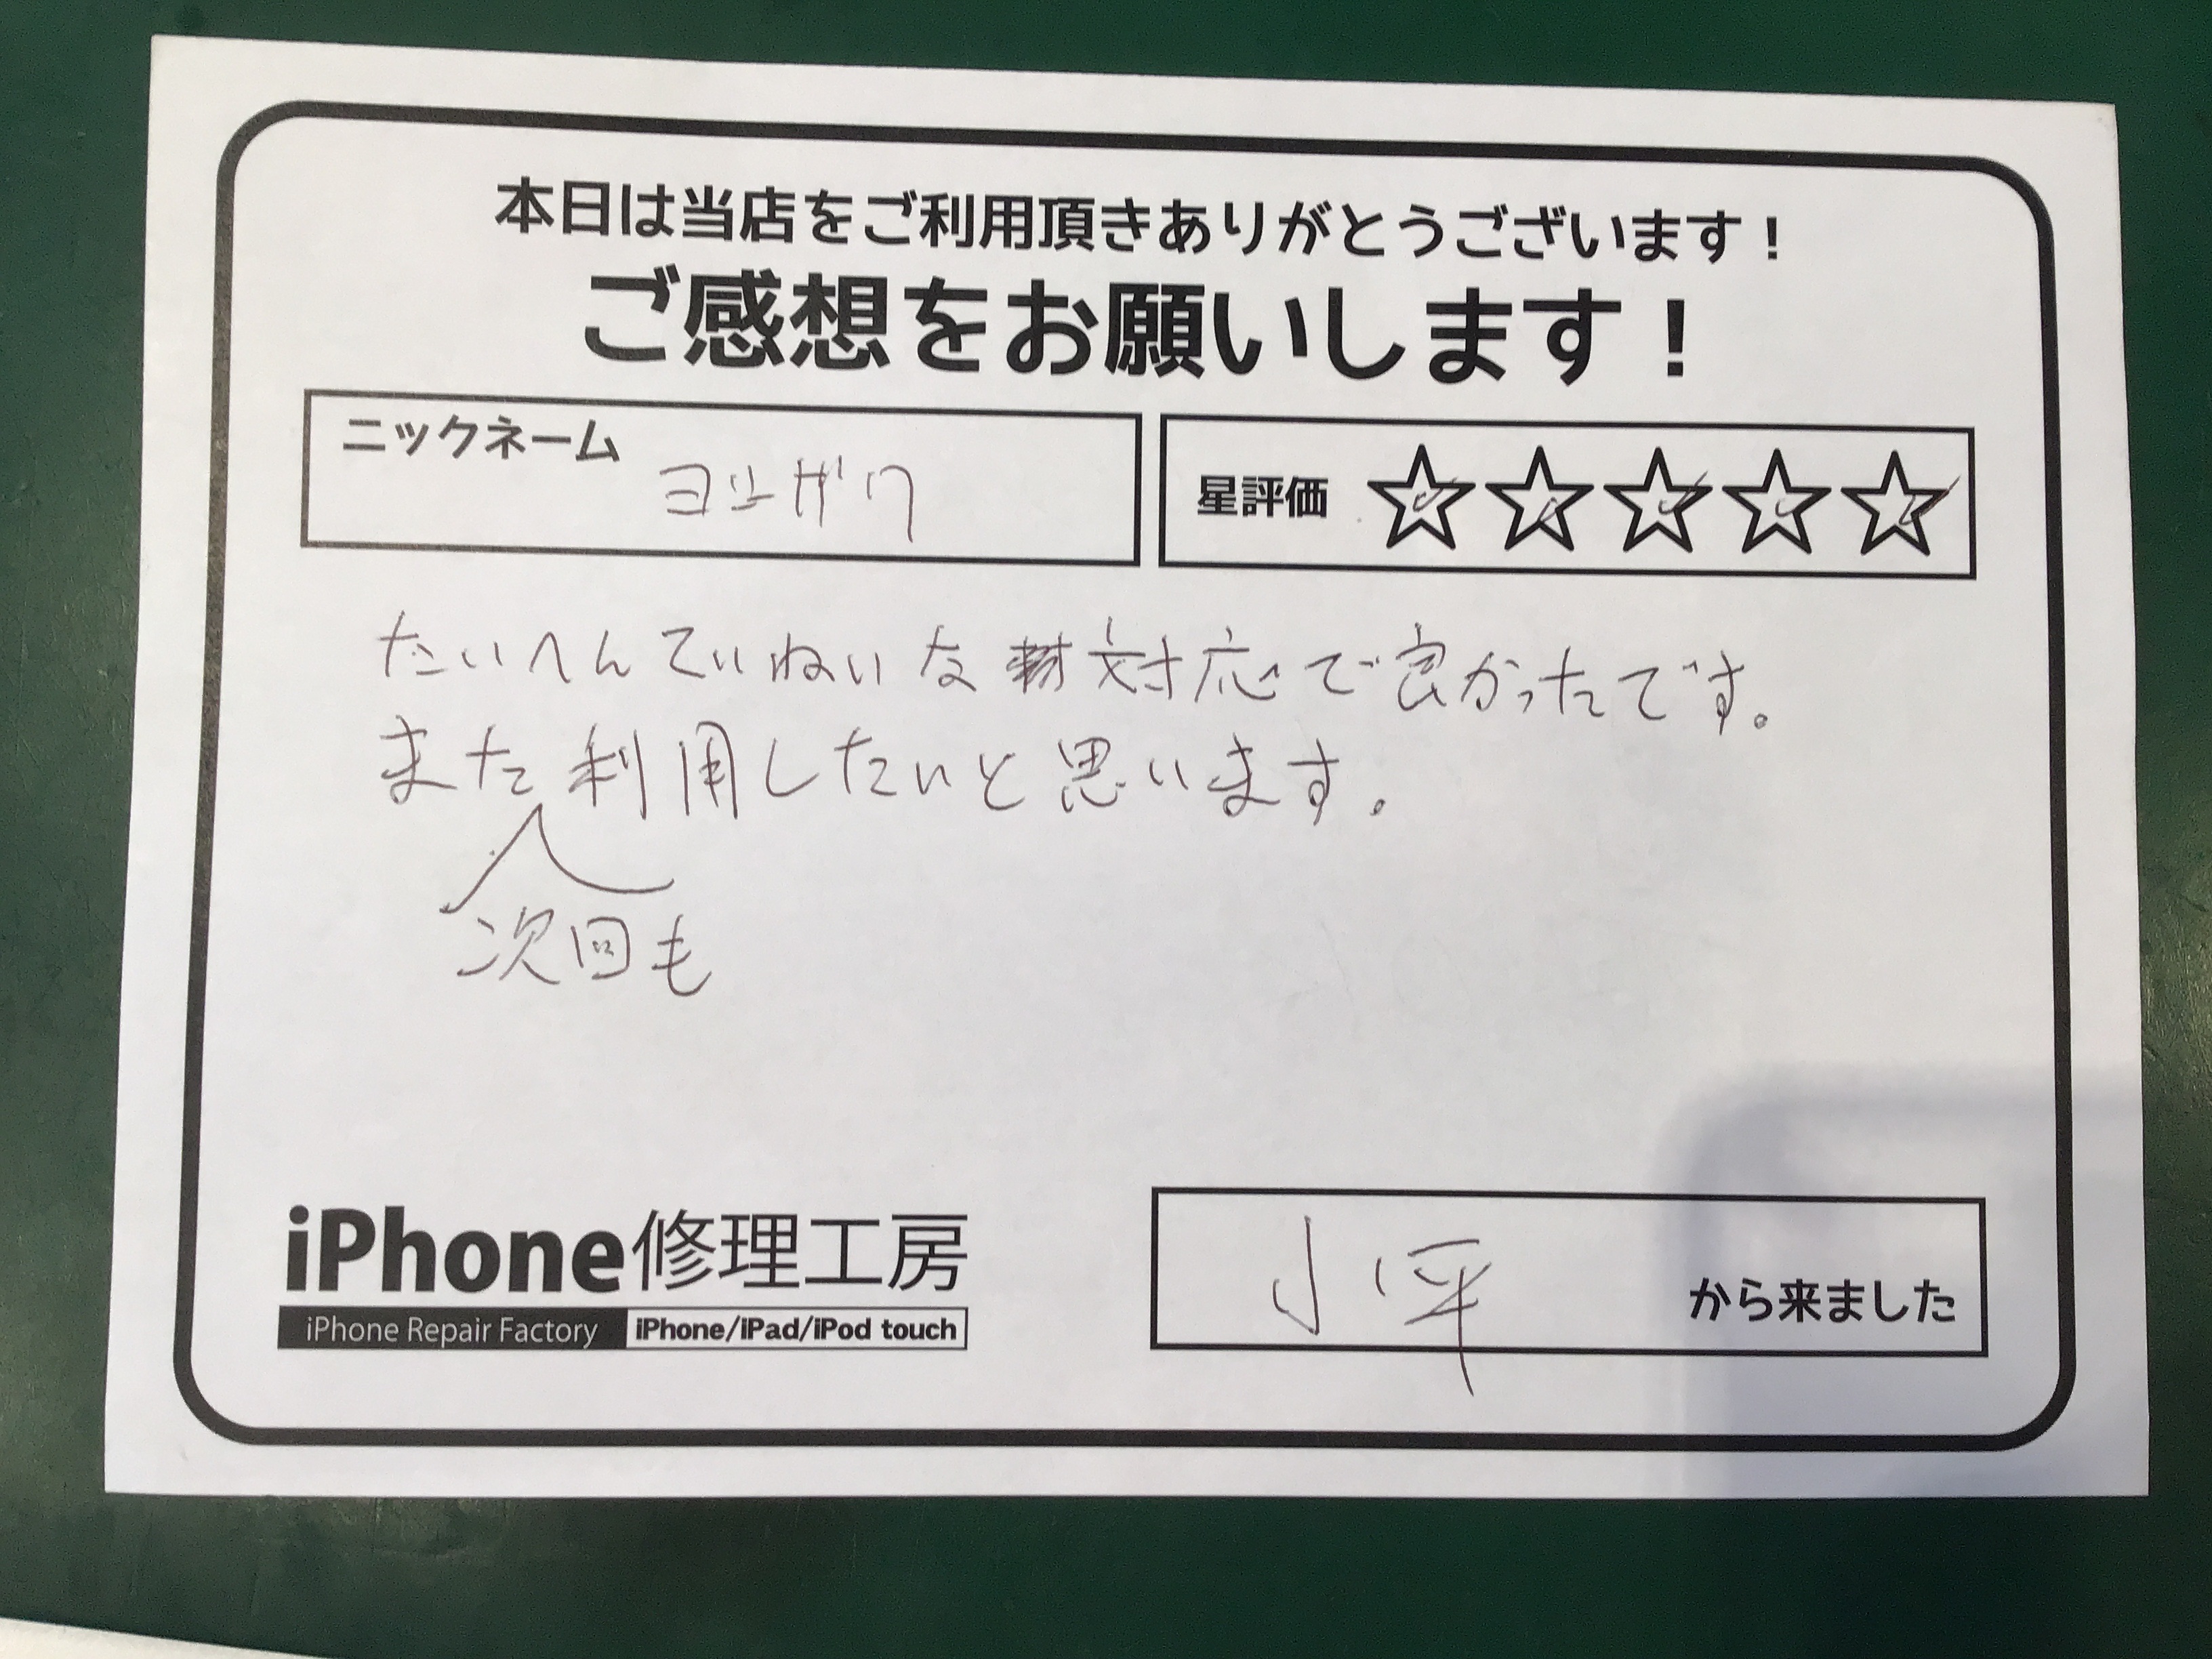 本日は当店をご利用頂きありがとうございます！
ご感想をお願いします！
ニックネーム
星評価 ☆☆☆☆☆
たいへんていねいな対応で良かったです。
また利用したいと思います。
次回も
iPhone修理工房
iPhone Repair Factory iPhone/iPad/iPod touch
小平 から来ました